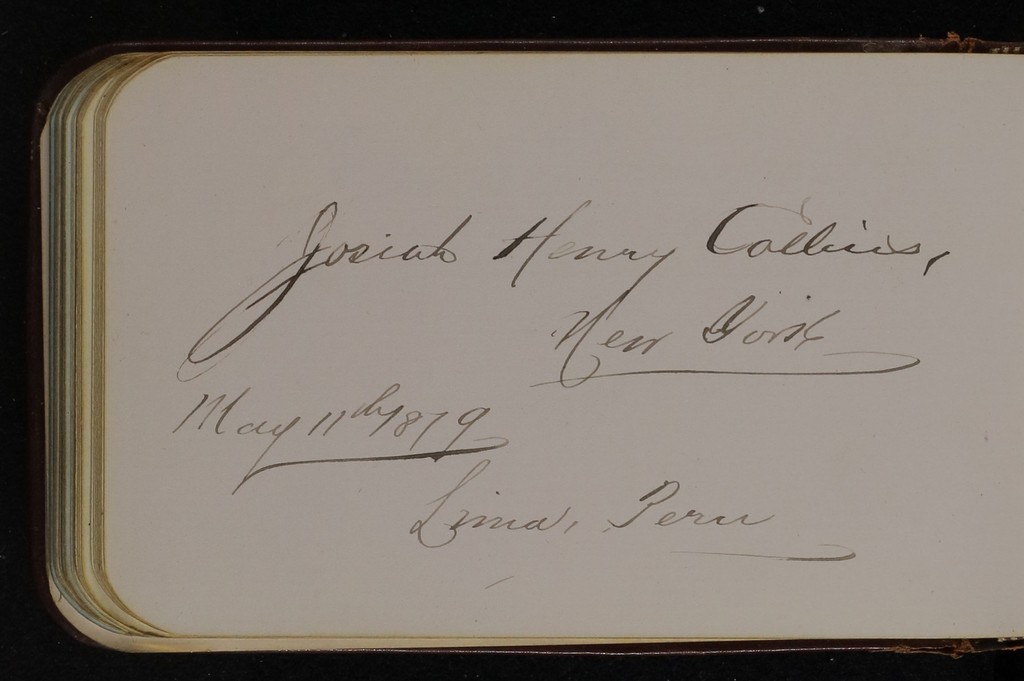 Josiah Henry Collins,
New York
May 11th 1879
Lima, Peru